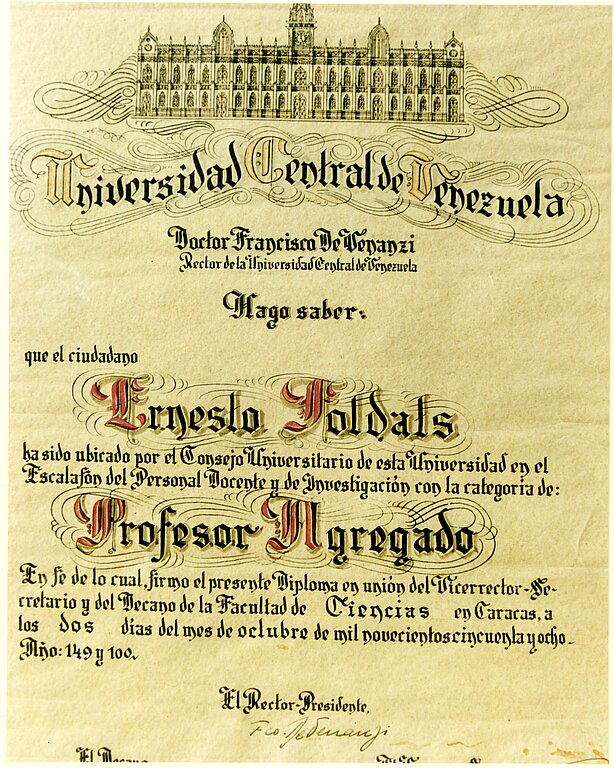 Universidad Central de Venezuela
Doctor Francisco De Venanzi
Rector de la Universidad Central de Venezuela
Hago saber:
que el ciudadano
Ernesto Foldats
ha sido ubicado por el Consejo Universitario de esta Universidad en el
Escalafón del Personal Docente y de Investigación con la categoria de:
Profesor Agregado
En fe de lo cual, firmo el presente Diploma en unión del Vicerrector-Se-
cretario y del Decano de la Facultad de Ciencias en Caracas, a
los dos días del mes de octubre de mil novecientos cincuenta y ocho.-
Año: 149 y 100.
El Rector-Presidente,
Fco. De Venanzi
El Decano